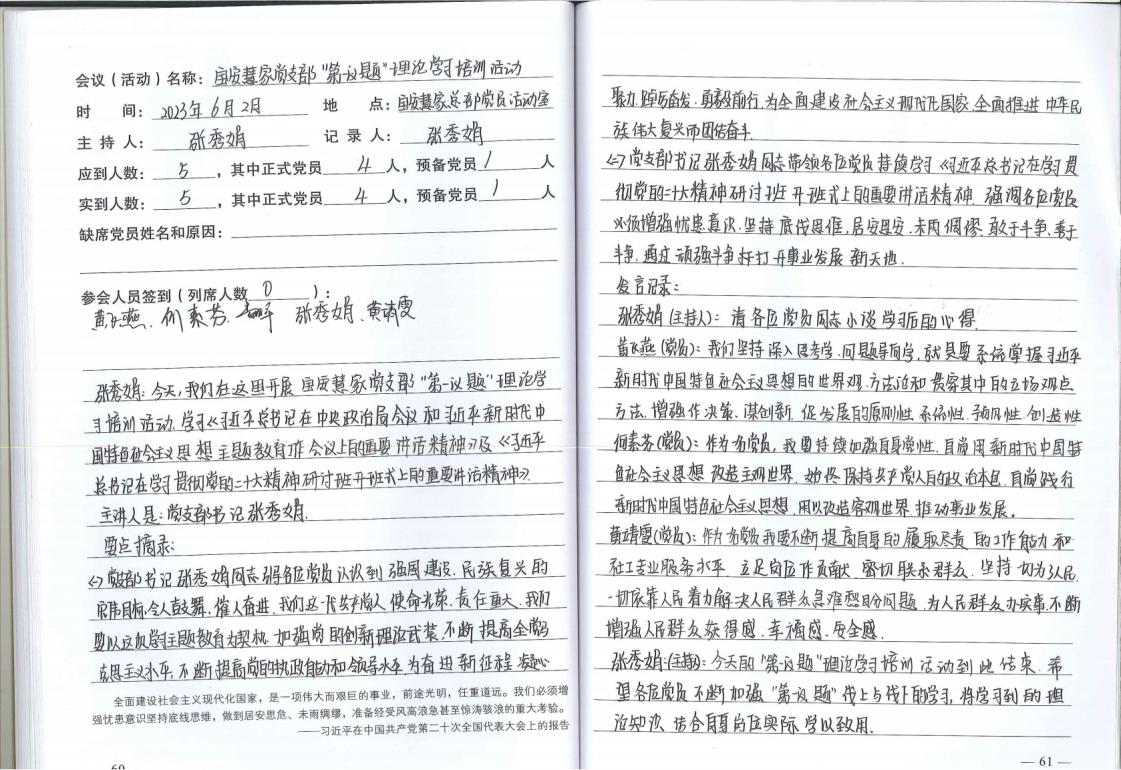 会议（活动）名称：宝安慧家党支部“第一议题”理论学习培训活动
时 间：2023年6月2日 地 点：宝安慧家总部党员活动室
主持人：张秀娟 记录人：张秀娟
应到人数：5，其中正式党员4人，预备党员1人
实到人数：5，其中正式党员4人，预备党员1人
缺席党员姓名和原因：
参会人员签到（列席人数0）：
黄飞燕、何素芬、 张秀娟、黄靖雯
张秀娟：今天，我们在这里开展宝安慧家党支部“第一议题”理论学
习培训活动，学习《习近平总书记在中央政治局会议和习近平新时代中
国特色社会主义思想主题教育工作会议上的重要讲话精神》及《习近平
总书记在学习贯彻党的二十大精神研讨班开班式上的重要讲话精神》
主讲人是：党支部书记张秀娟.
要点摘录：
(一)党支部书记张秀娟同志强调各位党员认识到强国建设、民族复兴的
宏伟目标令人鼓舞、催人奋进，我们这一代共产党人使命光荣、责任重大，我们
要以这次学习主题教育为契机，加强党的创新理论武装，不断提高全党马
克思主义水平，不断提高党的执政能力和领导水平，为奋进新征程凝心
全面建设社会主义现代化国家，是一项伟大而艰巨的事业，前途光明，任重道远。我们必须增
强忧患意识坚持底线思维，做到居安思危、未雨绸缪，准备经受风高浪急甚至惊涛骇浪的重大考验。
——习近平在中国共产党第二十次全国代表大会上的报告
60
聚力，踔厉奋发、勇毅前行，为全面建设社会主义现代化国家、全面推进中华民
族伟大复兴而团结奋斗.
(二)党支部书记张秀娟同志带领各位党员持续学习《习近平总书记在学习贯
彻党的二十大精神研讨班开班式上的重要讲话精神，强调各位党员
必须增强忧患意识，坚持底线思维，居安思安、未雨绸缪，敢于斗争、善于
斗争，通过顽强斗争打开事业发展新天地.
发言记录：
张秀娟（主持人）：请各位党员同志小谈学习后的心得.
黄飞燕（党员）：我们坚持深入思考学、问题导向学，就是要系统掌握习近平
新时代中国特色社会主义思想的世界观、方法论和贯穿其中的立场观点
方法，增强作决策、谋创新、促发展的原则性、系统性、预见性、创造性
何素芬（党员）：作为党员，我要持续加强自身党性，自觉用新时代中国特
色社会主义思想改造主观世界，始终保持共产党人的政治本色，自觉践行
新时代中国特色社会主义思想，用以改造客观世界、推动事业发展。
黄靖雯（党员）：作为党员我要不断提高自身的履职尽责的工作能力和
社工专业服务水平，立足岗位作贡献，密切联系群众，坚持一切为了人民
一切依靠人民，着力解决人民群众急难愁盼问题，为人民群众办实事，不断
增强人民群众获得感、幸福感、安全感.
张秀娟（主持）：今天的“第一议题”理论学习培训活动到此结束，希
望各位党员不断加强“第一议题”线上与线下的学习，将学习到的理
论知识，结合自身岗位实际，学以致用.
— 61 —